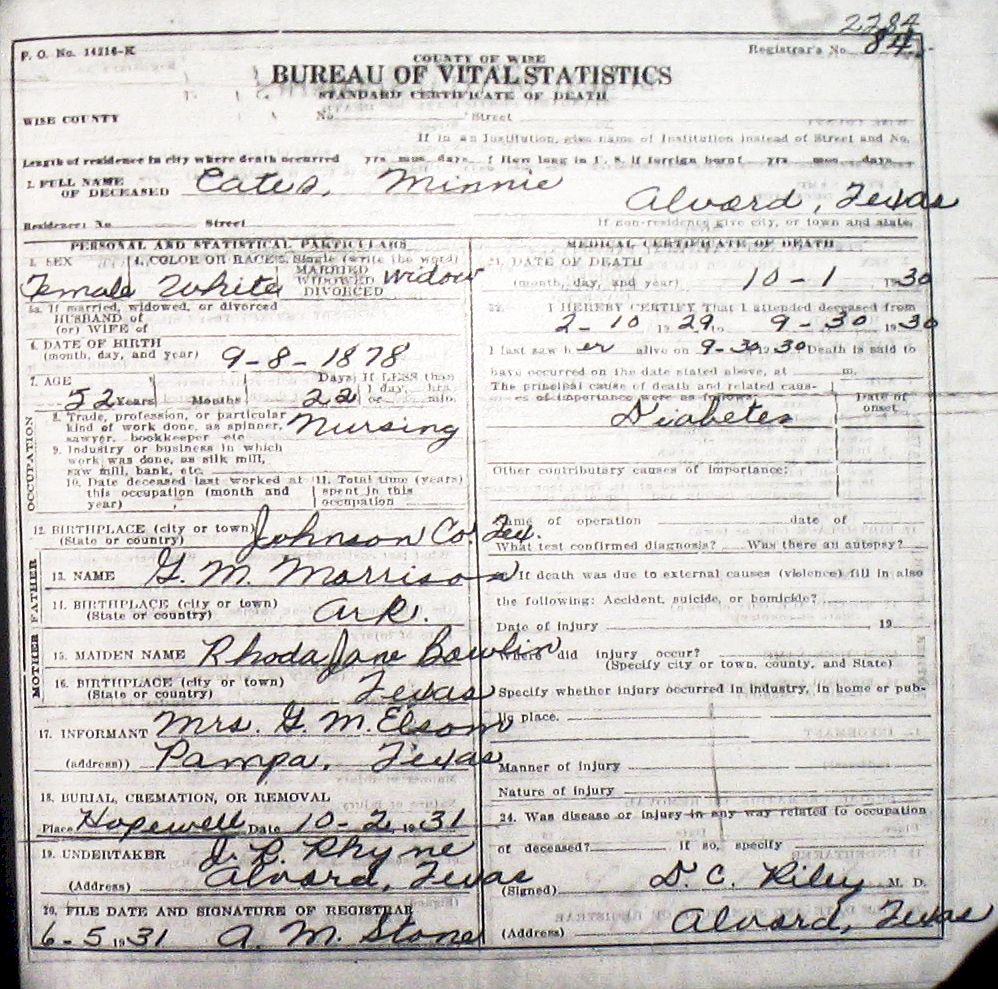 2284
F. O. No. 14214-K
Registrar's No. 84
COUNTY OF WISE
BUREAU OF VITAL STATISTICS
STANDARD CERTIFICATE OF DEATH
WISE COUNTY No. Street
If in an Institution, give name of Institution instead of Street and No.
Length of residence in city where death occurred yrs mos days How long in U. S. if foreign born? yrs mos days
1. FULL NAME OF DECEASED Cates, Minnie
Alvord, Texas
Residence No. Street If non-residence give city, or town and state.
PERSONAL AND STATISTICAL PARTICULARS
3. SEX 4. COLOR OR RACE 5. Single (write the word)
MARRIED
Female White WIDOWED Widow
DIVORCED
5a. If married, widowed, or divorced
HUSBAND of
(or) WIFE of
6. DATE OF BIRTH
(month, day, and year) 9-8-1878
7. AGE Days If LESS than
1 day, hrs.
52 Years Months 22 or min.
OCCUPATION
8. Trade, profession, or particular
kind of work done, as spinner, Nursing
sawyer, bookkeeper etc
9. Industry or business in which
work was done, as silk mill,
saw mill, bank, etc.
10. Date deceased last worked at this occupation (month and year)
11. Total time (years) spent in this occupation
12. BIRTHPLACE (city or town) Johnson Co. Tex.
(State or country)
FATHER
13. NAME G. M. Morrison
14. BIRTHPLACE (city or town) Ark.
(State or country)
MOTHER
15. MAIDEN NAME Rhoda Jane Bowlin
16. BIRTHPLACE (city or town) Texas
(State or country)
17. INFORMANT Mrs. G. M. Elsom
(address)) Pampa, Texas
18. BURIAL, CREMATION, OR REMOVAL
Place Hopewell Date 10-2, 1931
19. UNDERTAKER J. R. Rhyne
(Address) Alvord, Texas
20. FILE DATE AND SIGNATURE OF REGISTRAR
6-5 1931 A. M. Stone
MEDICAL CERTIFICATE OF DEATH
21. DATE OF DEATH
(month, day, and year) 10-1 1930
22. I HEREBY CERTIFY That I attended deceased from
2-10 1929 to 9-30, 1930
I last saw her alive on 9-30, 1930 Death is said to
have occurred on the date stated above, at m.
The principal cause of death and related causes of importance were as follows: Date of onset
Diabetes
Other contributory causes of importance:
Name of operation date of
What test confirmed diagnosis? Was there an autopsy?
If death was due to external causes (violence) fill in also
the following: Accident, suicide, or homicide?
Date of injury 19
Where did injury occur?
(Specify city or town, county, and State)
Specify whether injury occurred in industry, in home or pub-
lic place.
Manner of injury
Nature of injury
24. Was disease or injury in any way related to occupation
of deceased? if so, specify
(Signed) D. C. Riley M. D.
(Address) Alvord, Texas